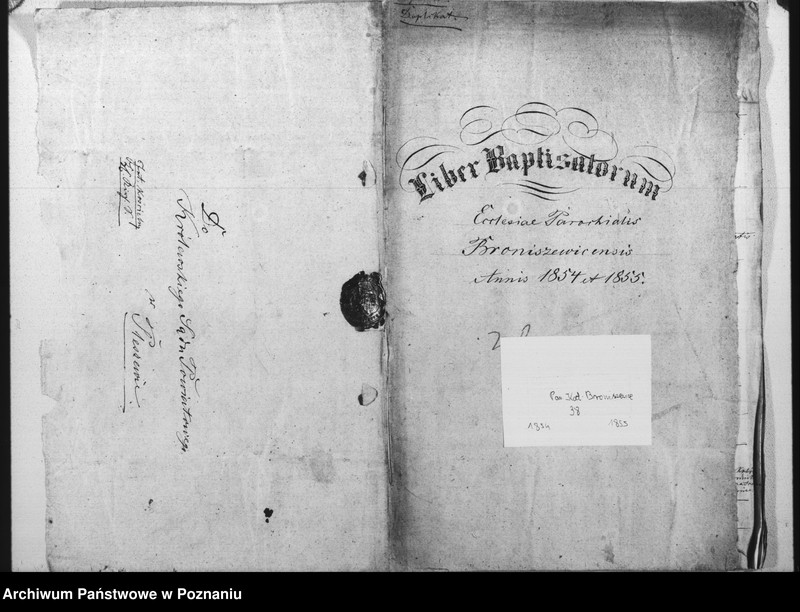 Do
Królewskiego Sądu Powiatowego
w Pleszewie
Duplikat
Liber Baptisatorum
Ecclesiae Parochialis
Broniszewicensis
Annis 1854 et 1855.
Par. Kat. Broniszewice
38
1854 1855
Archiwum Państwowe w Poznaniu